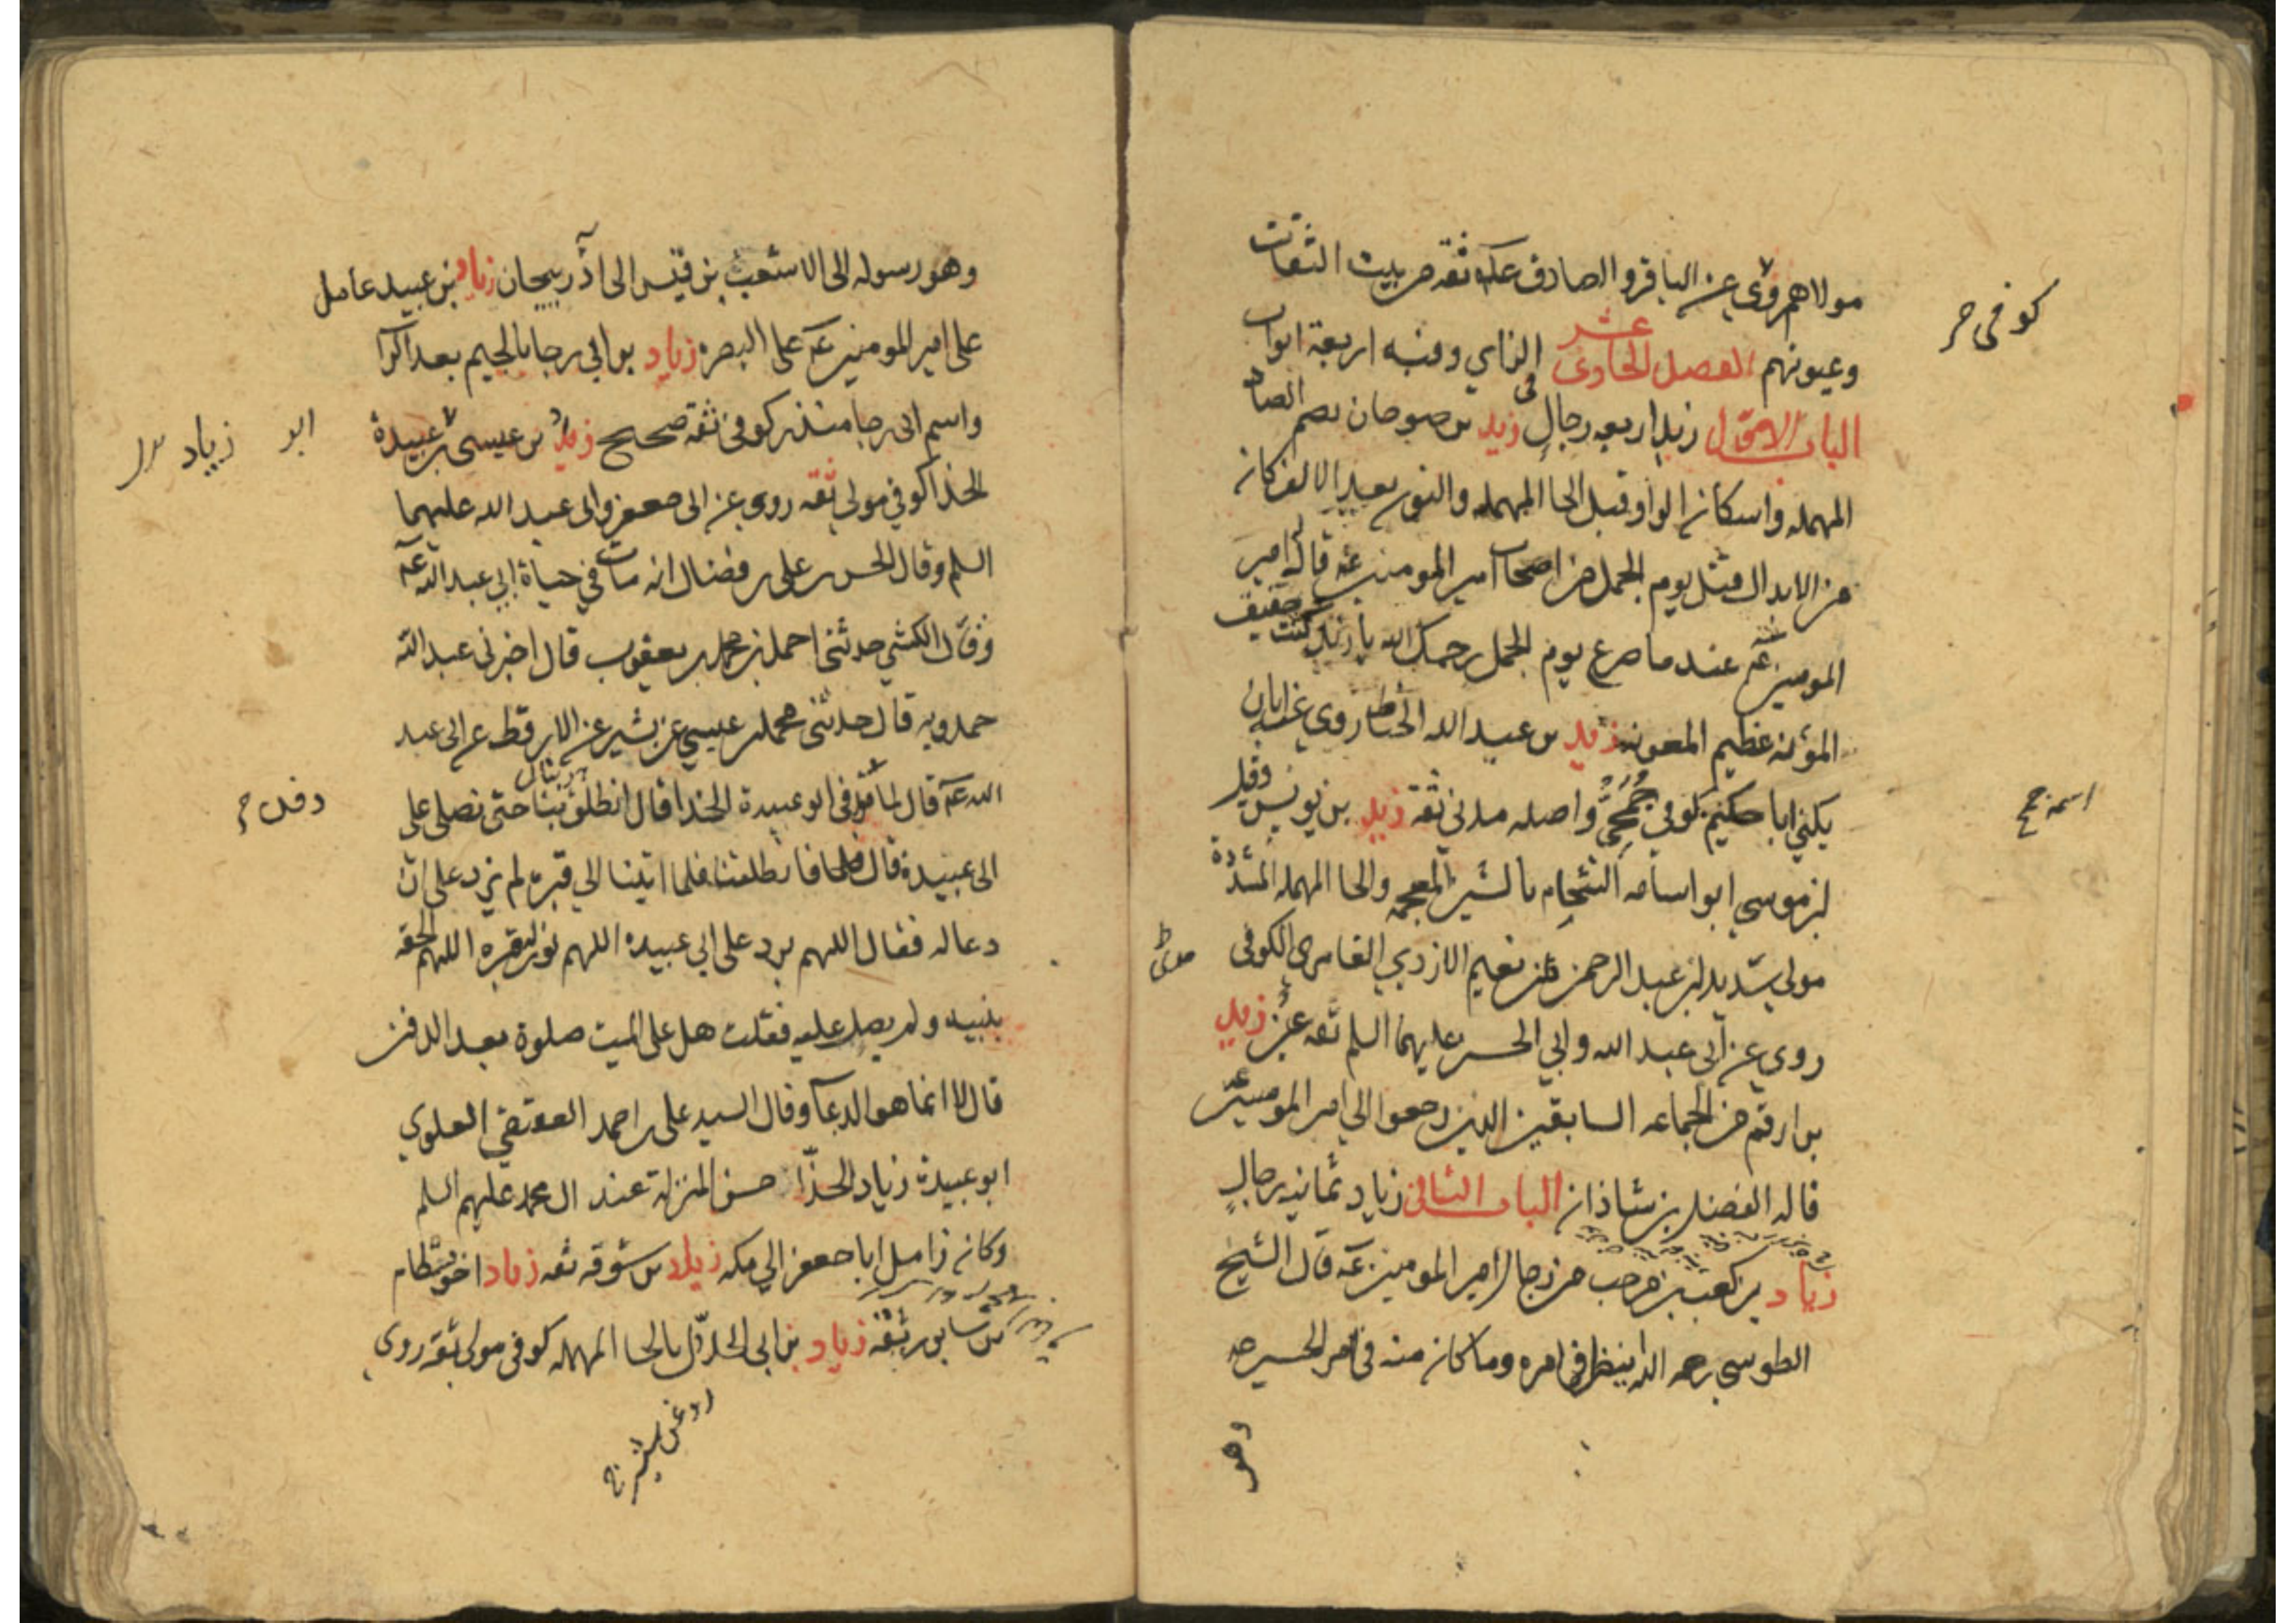 مولاهم روى عن الباقر والصادق ع ثقة من بيت الثقات
وعيونهم الفصل الحادى عشر فى الزاي وفيه اربعة ابواب
الباب الاول زيد اربعه رجال زيد بن صوحان بضم الصاد
المهمله واسكان الواو قبل الحا المهمله والنون بعد الالف كان
من الابدال قتل يوم الجمل من اصحاب امير المومنين ع قال له امير
المومنين ع عندما صرع يوم الجمل رحمك الله يا زيد كنت خفيف
المؤنه عظيم المعونه زيد بن عبيد الله الحناط روي عنه ابان
يكنى ابا حكيم كوفي جمحي واصله مدني ثقة زيد بن يونس وقيل
ابن موسي ابو اسامه الشحام بالشين المعجمه والحا المهمله المشددة
مولى شديد بن عبد الرحمن بن نعيم الازدي الغامرى الكوفى
روي عن ابي عبد الله وابي الحسن عليهما السلم ثقه عين زيد
بن ارقم من الجماعه السابقين الذين رجعوا الي امير المومنين ع
قاله الفضل بن شاذان الباب الثانى زياد ثمانيه رجال
زياد بن كعب بن مرحب من رجال امير المومنين ع قال الشيخ
الطوسي رحمه الله ينظر فى امره وما كان منه فى امر الحسين ع
وهو
كوفى
اسمه جمح
وهو رسوله الى الاشعث بن قيس الى اذربيجان زياد بن عبيد عامل
على امير المومنين ع على البصره زياد بن ابي رجا بالجيم بعد الرا
واسم ابى رجا منذر كوفى ثقة صحيح زياد بن عيسى ابو عبيدة
الحذا كوفي مولى ثقه روى عن ابى جعفر وابى عبد الله عليهما
السلم وقال الحسن بن على بن فضال انه مات في حياة ابي عبد الله ع
وقال الكشي حدثنى احمد بن محمد بن يعقوب قال اخبرنى عبد الله
حمدويه قال حدثنى محمد بن عيسي عن بشير عن الارقط عن ابى عبد
الله ع قال لما دفن ابو عبيدة الحذا قال انطلق بنا حتى نصلى على
ابى عبيدة قال فانطلقنا فلما اتينا الي قبره لم يزد على ان
دعا له فقال اللهم برد على ابي عبيده اللهم نور له قبره اللهم الحقه
بنبيه ولم يصل عليه فقلت هل على الميت صلوة بعد الدفن
قال لا انما هو الدعا وقال السيد على بن احمد العقيقي العلوي
ابو عبيدة زياد الحذا حسن المنزلة عند ال محمد عليهم السلم
وكان زامل ابا جعفر الي مكه زياد بن سوقه ثقه زياد اخو بسطام
بن سابور ثقة زياد بن ابى الحلال بالحا المهمله كوفى مولى ثقة روى
ابو زياد